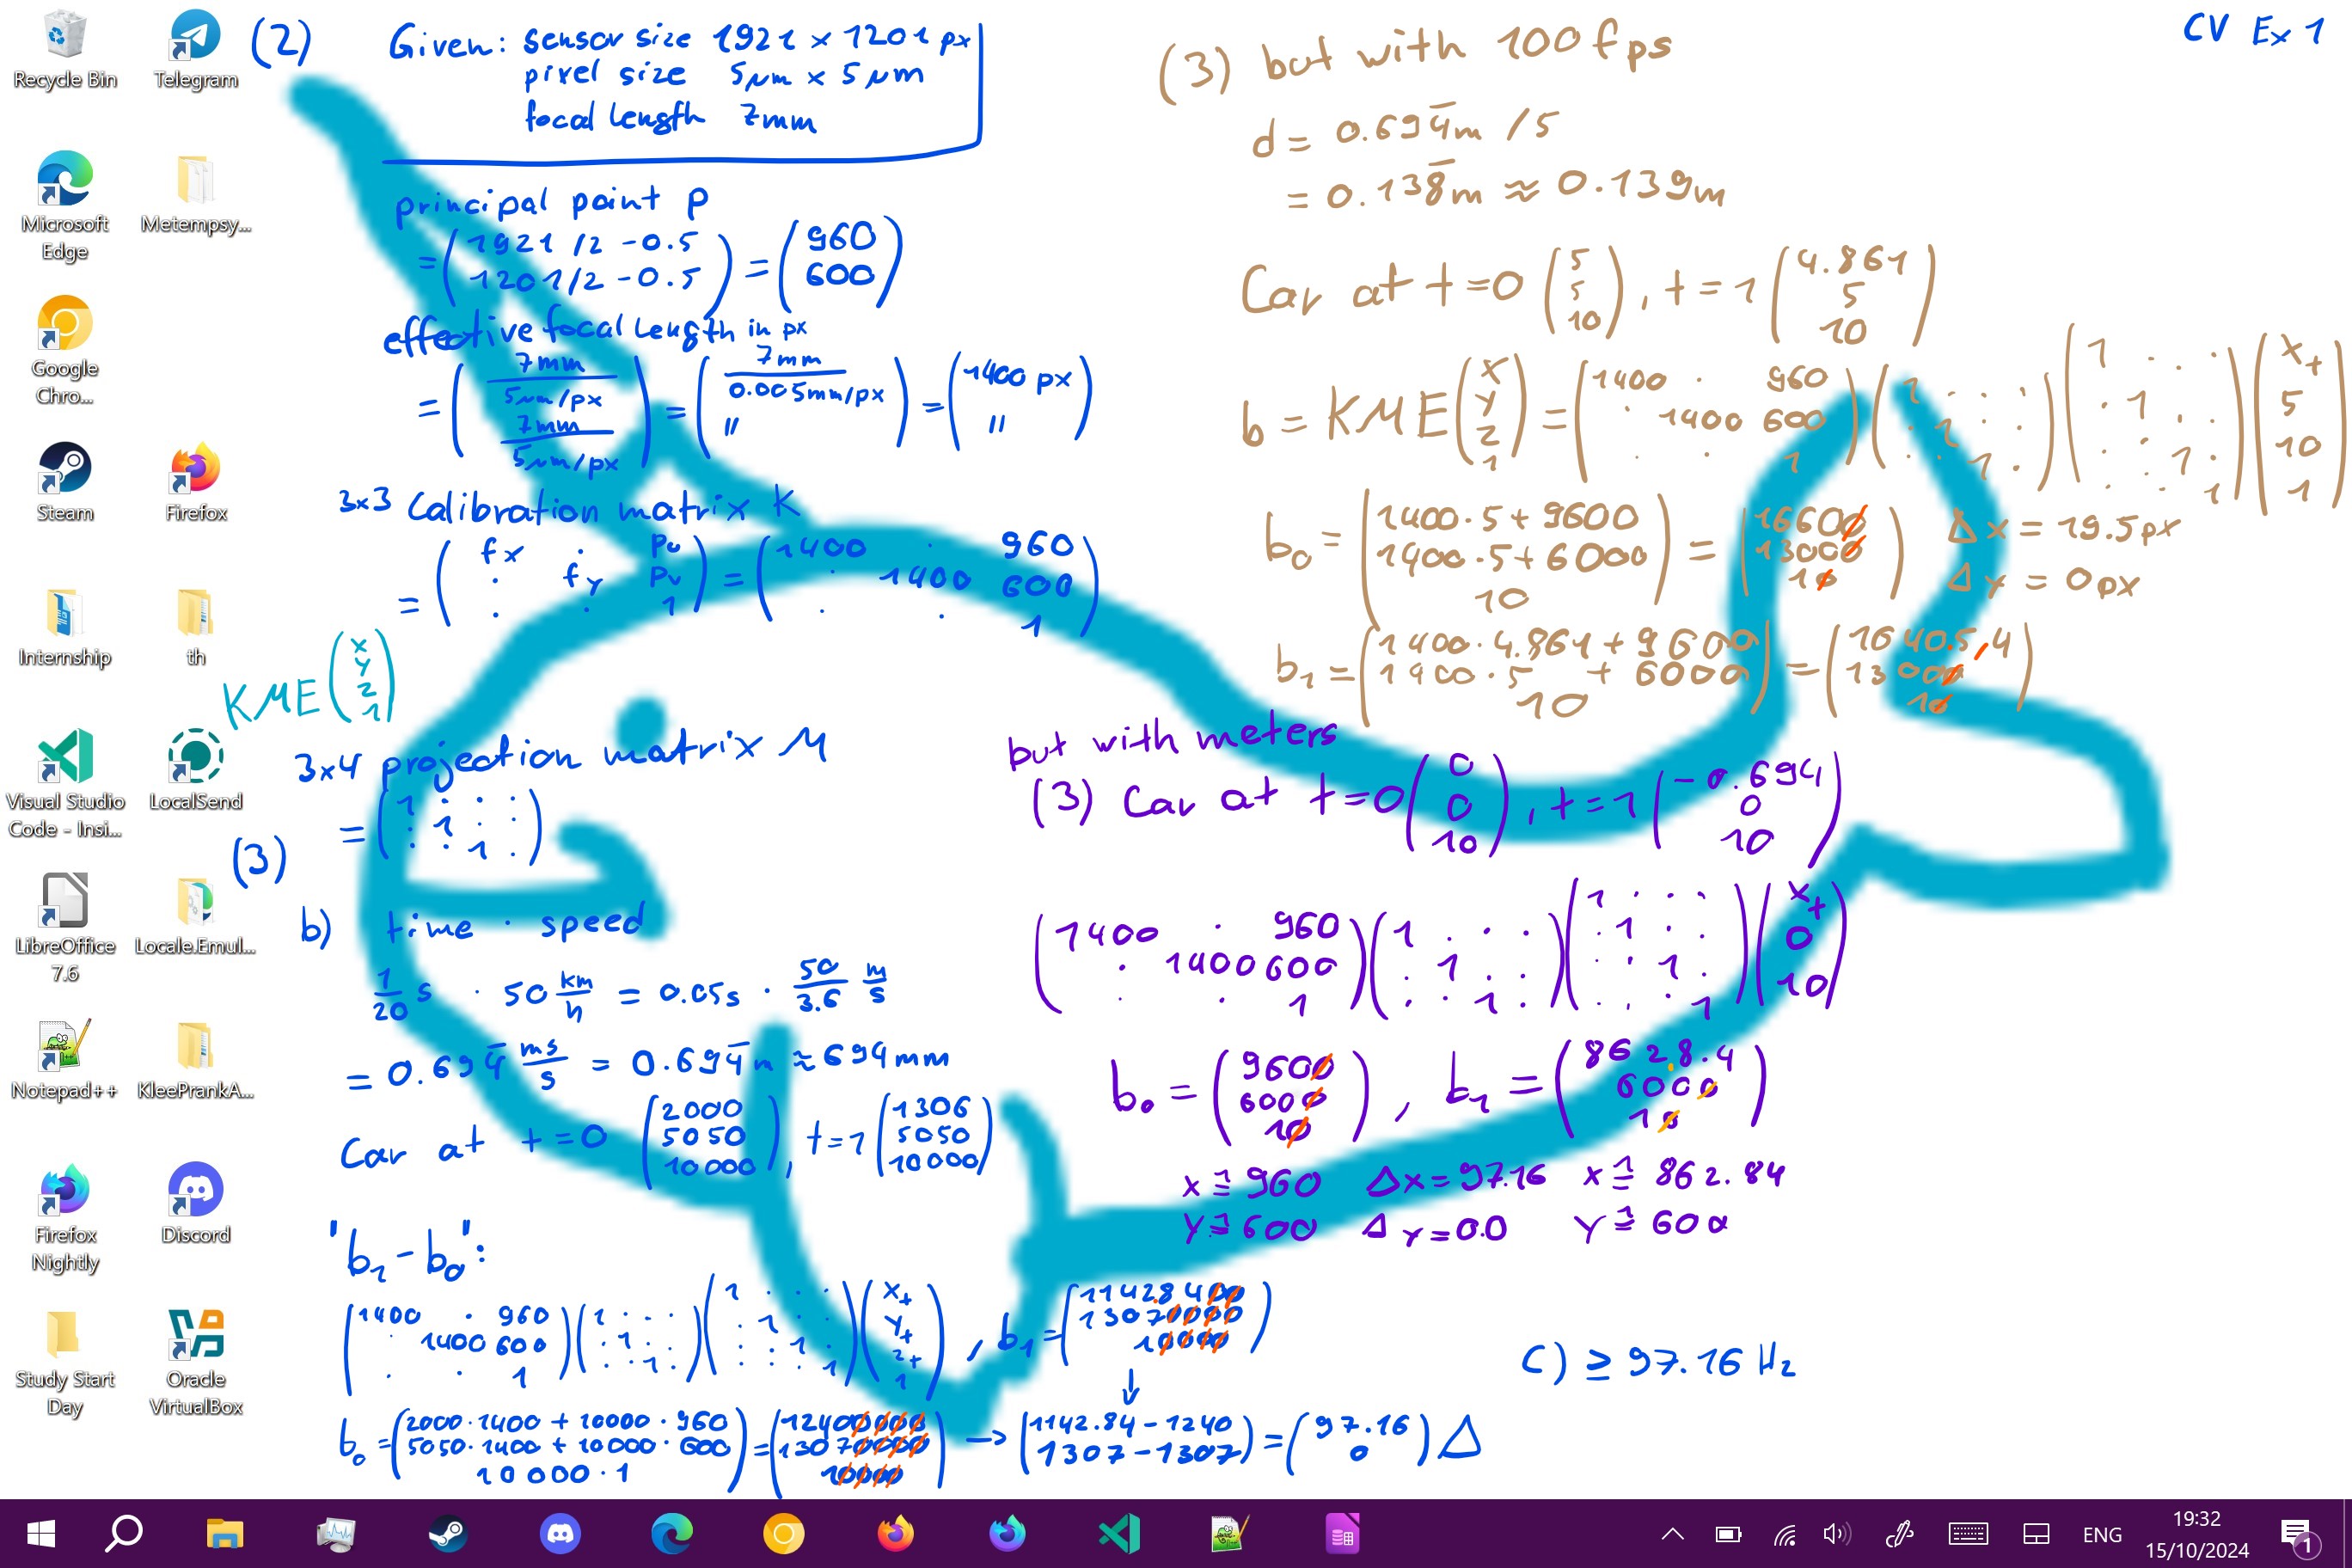 Recycle Bin
Telegram
Microsoft Edge
Metempsy...
Google Chro...
Steam
Firefox
Internship
th
Visual Studio Code - Insi...
LocalSend
LibreOffice 7.6
Locale.Emul...
Notepad++
KleePrankA...
Firefox Nightly
Discord
Study Start Day
Oracle VirtualBox
CV Ex 1
(2)
Given: sensor size 1921 x 1201 px
pixel size 5μm x 5μm
focal length 7mm
principal point p
= (1921/2 - 0.5
1201/2 - 0.5) = (960
600)
effective focal length in px
= (7mm / 5μm/px
7mm / 5μm/px) = (7mm / 0.005mm/px
") = (1400 px
")
3x3 Calibration matrix K
= (fx · pu
· fy pv
· · 1) = (1400 · 960
· 1400 600
· · 1)
KME (x
y
z
1)
3x4 projection matrix M
= (1 · · ·
· 1 · ·
· · 1 ·)
(3)
b) time · speed
1/20 s · 50 km/h = 0.05s · 50/3.6 m/s
= 0.694̄ ms/s = 0.694̄ m ≈ 694mm
Car at t=0 (2000
5050
10000), t=1 (1306
5050
10000)
"b₁ - b₀":
(1400 · 960
· 1400 600
· · 1) (1 · · ·
· 1 · ·
· · 1 ·) (1 · · ·
· 1 · ·
· · 1 ·
· · · 1) (x_t
y_t
z_t
1), b₁ = (11428400
13070000
10000)
↓
b₀ = (2000·1400 + 10000·960
5050·1400 + 10000·600
10000·1) = (12400000
13070000
10000) → (1142.84 - 1240
1307 - 1307) = (97.16
0) Δ
(3) but with 100 fps
d = 0.694̄m /5
= 0.138̄m ≈ 0.139m
Car at t=0 (5
5
10), t=1 (4.861
5
10)
b = KME (x
y
z
1) = (1400 · 960
· 1400 600
· · 1) (1 · · ·
· 1 · ·
· · 1 ·) (1 · · ·
· 1 · ·
· · 1 ·
· · · 1) (x_t
5
10
1)
b₀ = (1400·5 + 9600
1400·5 + 6000
10) = (16600
13000
10)
Δx = 19.5px
Δy = 0px
b₁ = (1400·4.861 + 9600
1400·5 + 6000
10) = (16405.4
13000
10)
but with meters
(3) Car at t=0 (0
0
10), t=1 (-0.694
0
10)
(1400 · 960
· 1400 600
· · 1) (1 · · ·
· 1 · ·
· · 1 ·) (1 · · ·
· 1 · ·
· · 1 ·
· · · 1) (x_t
0
10)
b₀ = (9600
6000
10), b₁ = (8628.4
6000
10)
x ≙ 960 Δx = 97.16 x ≙ 862.84
y ≙ 600 Δy = 0.0 y ≙ 600
c) ≥ 97.16 Hz
ENG
19:32
15/10/2024
1